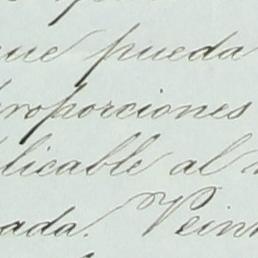 que pueda
proporciones
plicable al
ada. Vein